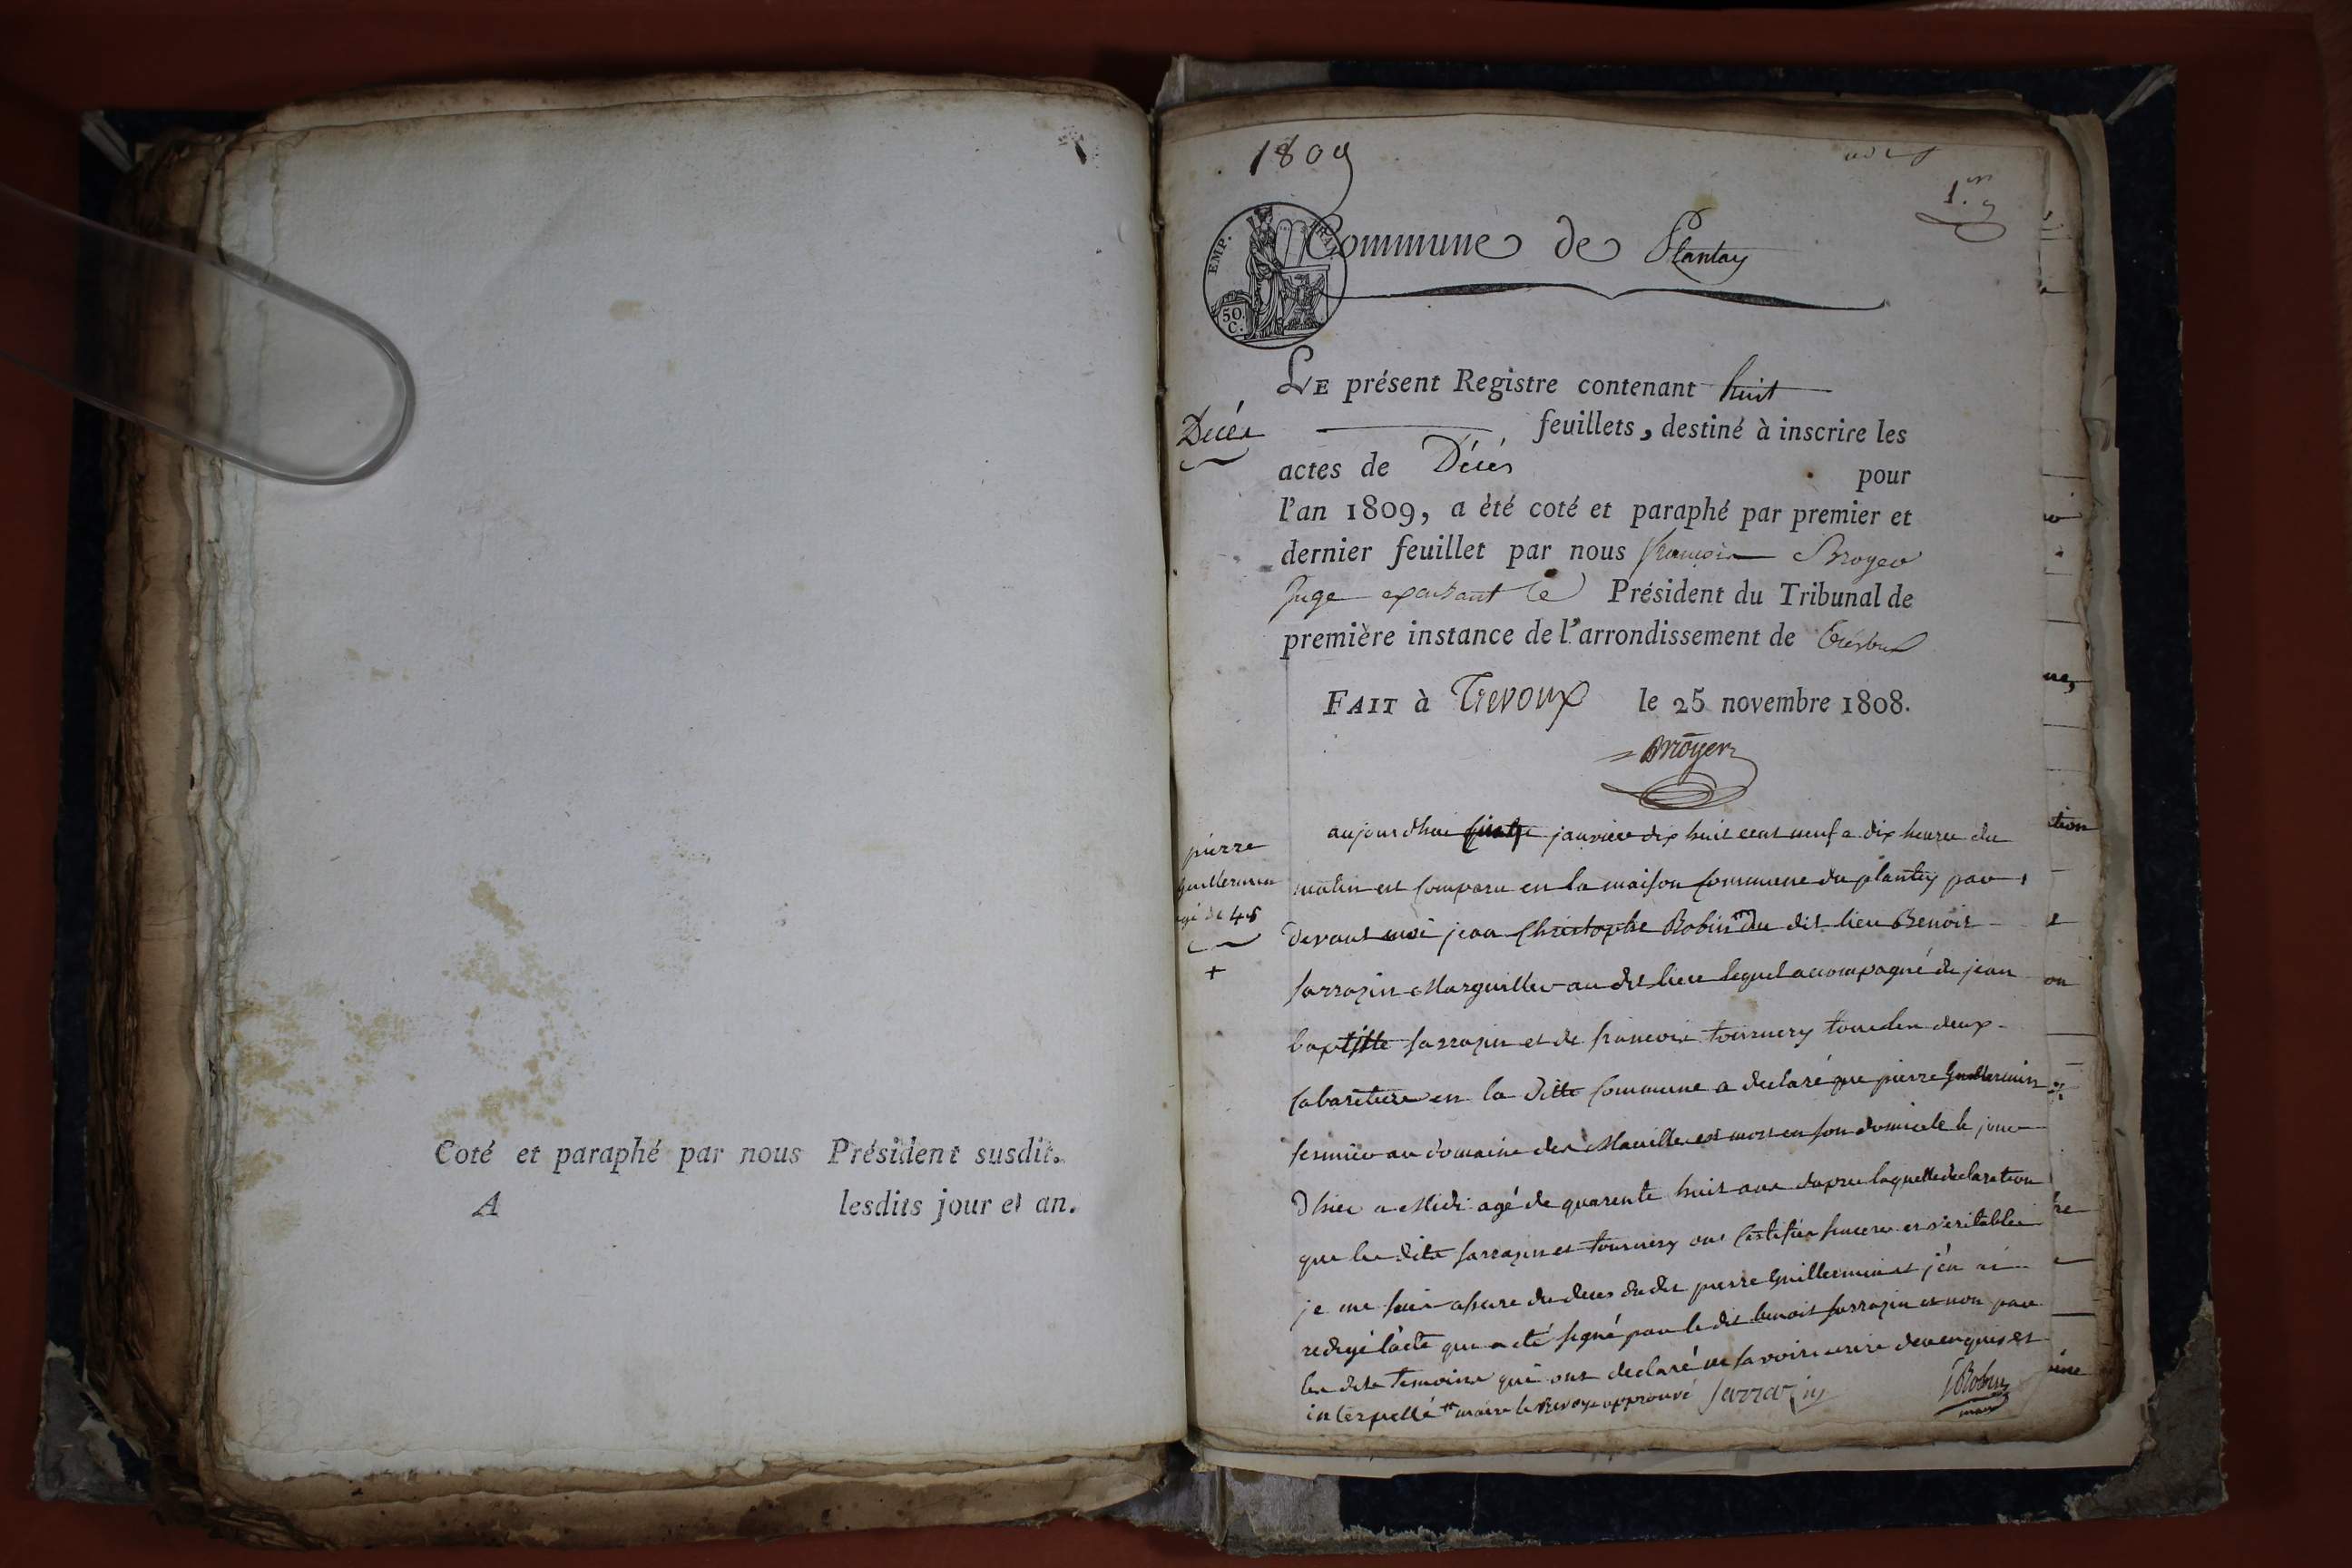 Coté et paraphé par nous Président susdit.
A lesdits jour et an.
1809
1.er
EMP. FRAN.
50. C.
Commune de Plantay
Décés
LE présent Registre contenant huit
feuillets, destiné à inscrire les
actes de Décés pour
l'an 1809, a èté coté et paraphé par premier et
dernier feuillet par nous françois Broyer
Juge Président du Tribunal de
première instance de l'arrondissement de Trévoux
FAIT à Trevoux le 25 novembre 1808.
Broyer
pierre
guillermin
agé de 48
+
aujourdhui janvier dix huit cent neuf a dix heures du
matin est comparu en la maison commune du plantay par
devant moi jean Christophe Robin du dit lieu Benoit
sarrazin Marguiller au dit lieu lequel accompagné de jean
baptiste sarrazin et de francois tournery tous les deux
cabaretiers en la ditte commune a declaré que pierre Guillermin
fermier au domaine des est mort en son domicile le jour
d'hier a Midi agé de quarente huit ans dapres laquelle declaration
que les dits sarrazin et tournery ont certifiés sincere et veritable
je me suis assure du deces du dit pierre Guillermin et j'en ai
redigé lacte qui a eté signé par le dit benoit sarrazin et non par
les dits temoins qui ont declaré ne savoir ecrire de ce enquis et
interpellé maire le renvoy approuvé sarrazin
Robin
maire